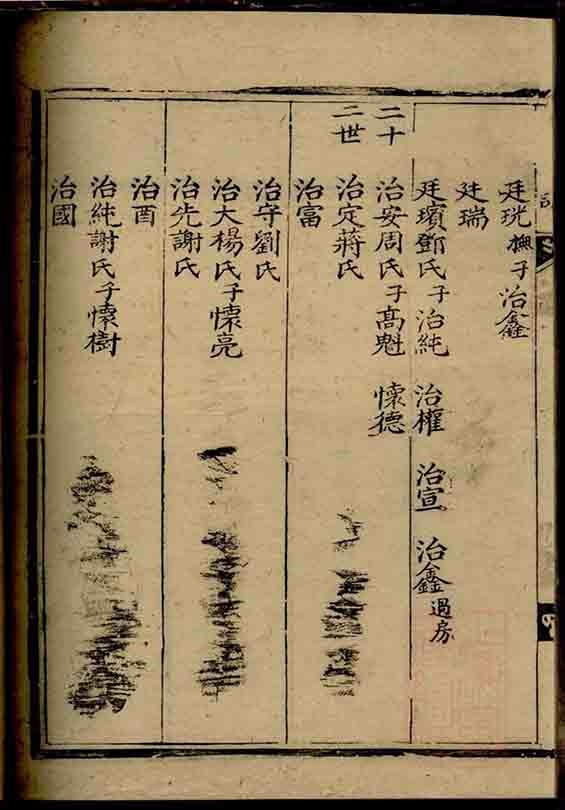 廷珖 撫子治鑫
廷瑞
廷璸鄧氏子治純 治權 治宣 治鑫過房
二十二世
治安周氏子高魁 懷德
治定蔣氏
治富
治守劉氏
治大楊氏子懷亮
治先謝氏
治酉
治純謝氏子懷樹
治國